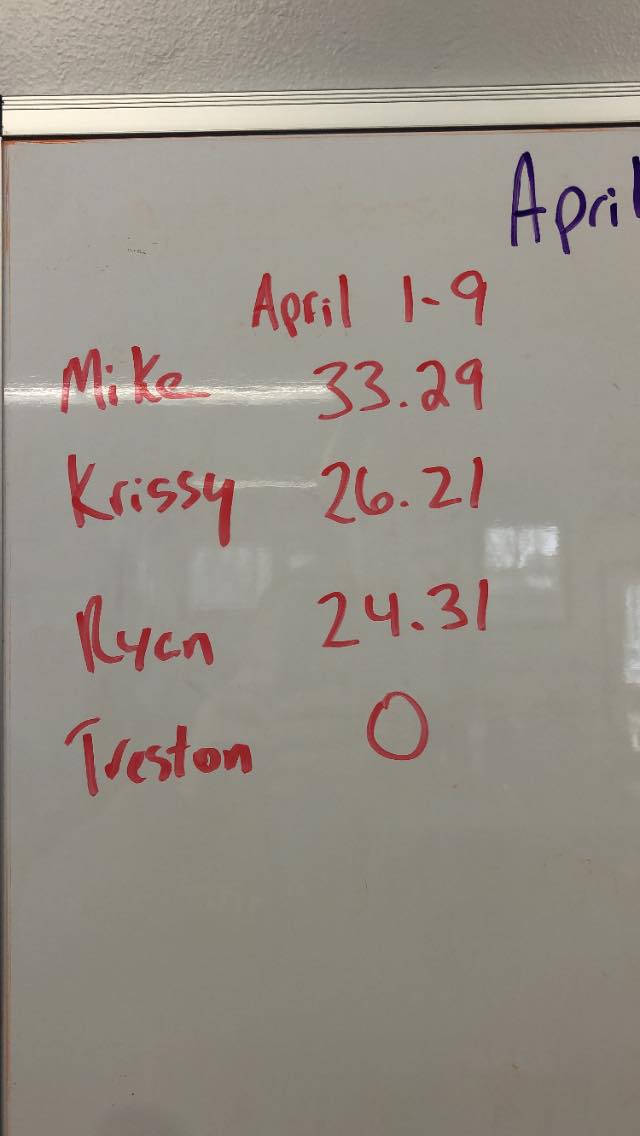 April
April 1-9
Mike 33.29
Krissy 26.21
Ryan 24.31
Treston 0